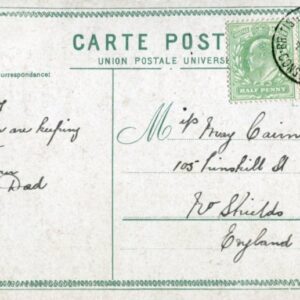 CARTE POST
UNION POSTALE UNIVERSE
orrespondance:
HALF PENNY
CONS
are keeping
Dad
Miss May Cairn
105 Linskill St
No Shields
England